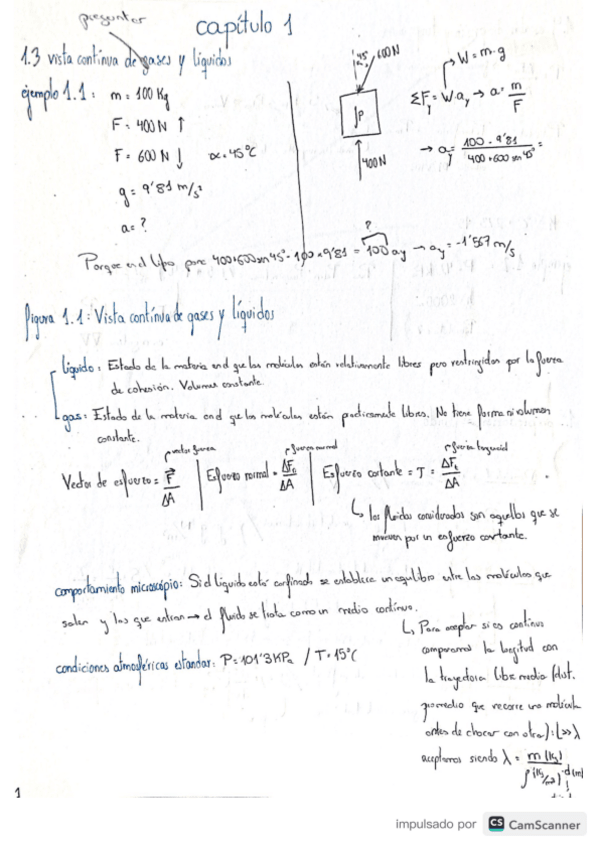 preguntar
capítulo 1
1.3 vista continua de gases y líquidos
ejemplo 1.1: m = 100 Kg
F = 400 N ↑
F = 600 N ↓ α = 45°C
g = 9'81 m/s²
a = ?
45° 600 N
P
400 N
W = m·g
ΣFy = W·ay → a = m/F
→ ay = 100 · 9'81 / 400 + 600 sen 45° =
?
Porque en el libro pone 400+600sen45° - 100×9'81 = 100 ay → ay = -1'567 m/s
figura 1.1: Vista contínua de gases y líquidos
líquido: Estado de la materia en el que las moléculas están relativamente libres pero restringidas por la fuerza
de cohesión. Volumen constante.
gas: Estado de la materia en el que las moléculas están practicamente libres. No tiene forma ni volumen
constante.
vector fuerza
Vector de esfuerzo = F/ΔA
fuerza normal
Esfuerzo normal = ΔFn/ΔA
fuerza tangencial
Esfuerzo cortante = T = ΔFt/ΔA
los fluidos considerados son aquellos que se
mueven por un esfuerzo cortante.
comportamiento microscópio: Si el líquido está confinado se establece un equilibro entre las moléculas que
salen y las que entran → el fluido se trata como un medio continuo.
condiciones atmosféricas estandar: P = 101'3 KPa / T = 15°C
Para aceptar si es continuo
comparamos la longitud con
la trayectoria libre media (dist.
promedio que recorre una molécula
antes de chocar con otra): L >> λ
aceptamos siendo λ = m (Kg)
1
impulsado por CS CamScanner